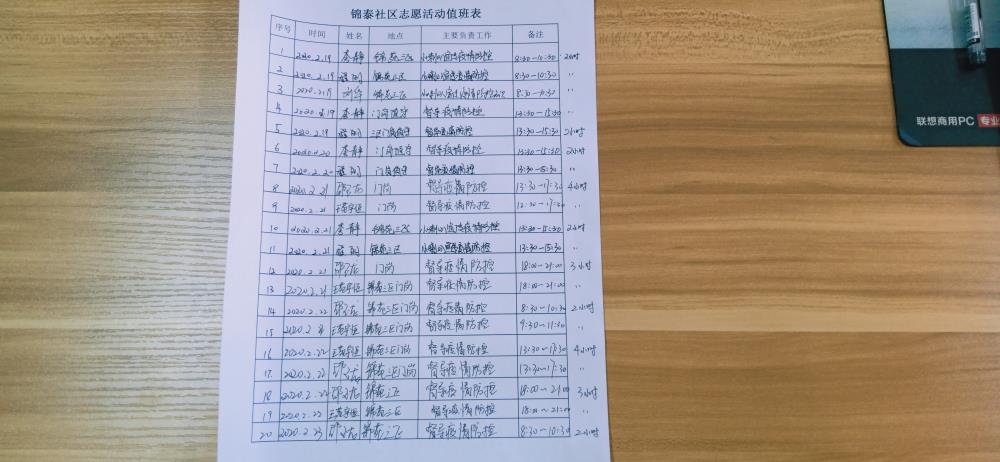 锦泰社区志愿活动值班表
序号 时间 姓名 地点 主要负责工作 备注
1 2020.2.19 李静 锦苑三区 小喇叭宣传疫情防控 8:30-10:30 2小时
2 2020.2.19 锦苑三区 小喇叭宣传疫情防控 8:30-10:30 〃
3 锦苑三区 小喇叭宣传疫情防控 8:30-10:30 〃
4 2020.2.19 李静 门岗值守 督导疫情防控 13:30-15:30
5 2020.2.19 三区门岗值守 督导疫情防控 13:30-15:30 2小时
6 2020.2.20 李静 门岗值守 督导疫情防控 13:30-15:30 2小时
7 2020.2.20 门岗值守 督导疫情防控 13:30-15:30 〃
8 2020.2.21 门岗 督导疫情防控 13:30-17:30 4小时
9 2020.2.21 门岗 督导疫情防控 〃
10 2020.2.21 李静 锦苑三区 小喇叭宣传疫情防控 13:30-15:30 2小时
11 2020.2.21 锦苑三区 小喇叭宣传疫情防控 13:30-15:30 〃
12 2020.2.21 门岗 督导疫情防控 18:00-21:00 3小时
13 2020.2.21 锦苑三区门岗 督导疫情防控 18:00-21:00 〃
14 2020.2.22 锦苑三区门岗 督导疫情防控 8:30-10:30 2小时
15 锦苑三区门岗 督导疫情防控 9:30-11:30 〃
16 2020.2.22 锦苑三区门岗 督导疫情防控 13:30-17:30 4小时
17 2020.2.22 锦苑三区门岗 督导疫情防控 13:30-17:30 〃
18 2020.2.22 锦苑三区 督导疫情防控 18:00-21:00 3小时
19 2020.2.22 锦苑三区 督导疫情防控 18:00-21:00 〃
20 2020.2.23 锦苑三区 督导疫情防控 8:30-10:30 2小时
联想商用PC 专业